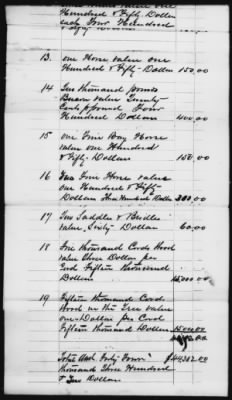 Hundred & Fifty Dollars
each Four Hundred
& Fifty Dollars
13. one Horse value one
Hundred & Fifty Dollars 150.00
14 Two thousand pounds
Bacon value Twenty
Cents pr pound Four
Hundred Dollars 400.00
15 one Fine Bay Horse
value one Hundred
& Fifty Dollars 150.00
16 Two Fine Horse value
one Hundred & Fifty
Dollars Three Hundred Dollars 300.00
17 Two Saddles & Bridles
value, Sixty Dollars 60.00
18 Five thousand Cords Wood
value Three Dollars per
Cord Fifteen thousand
Dollars 15,000.00
19 Fifteen thousand Cord
Wood in the Tree value
one Dollar per Cord
Fifteen thousand Dollars 15,000.00
Total Amt Forty Four $44302.00
thousand Three Hundred
& Two Dollars